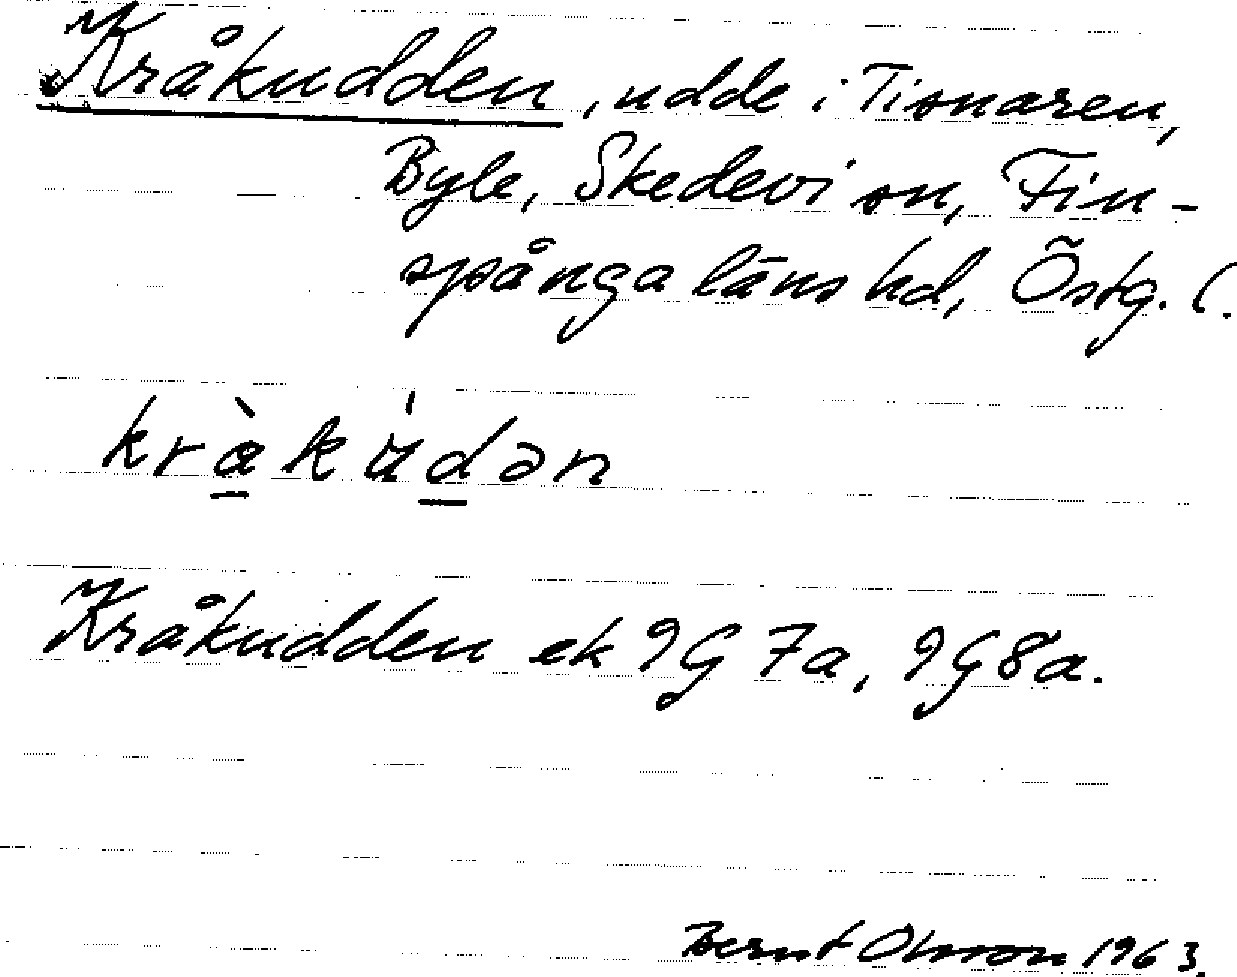 Kråkudden, udde i Tisnaren,
Byle, Skedevi sn, Fin-
spånga läns hd, Östg. l.
kràkúdən
Kråkudden ek 9G 7a, 9G8a.
Bernt Olsson 1963.